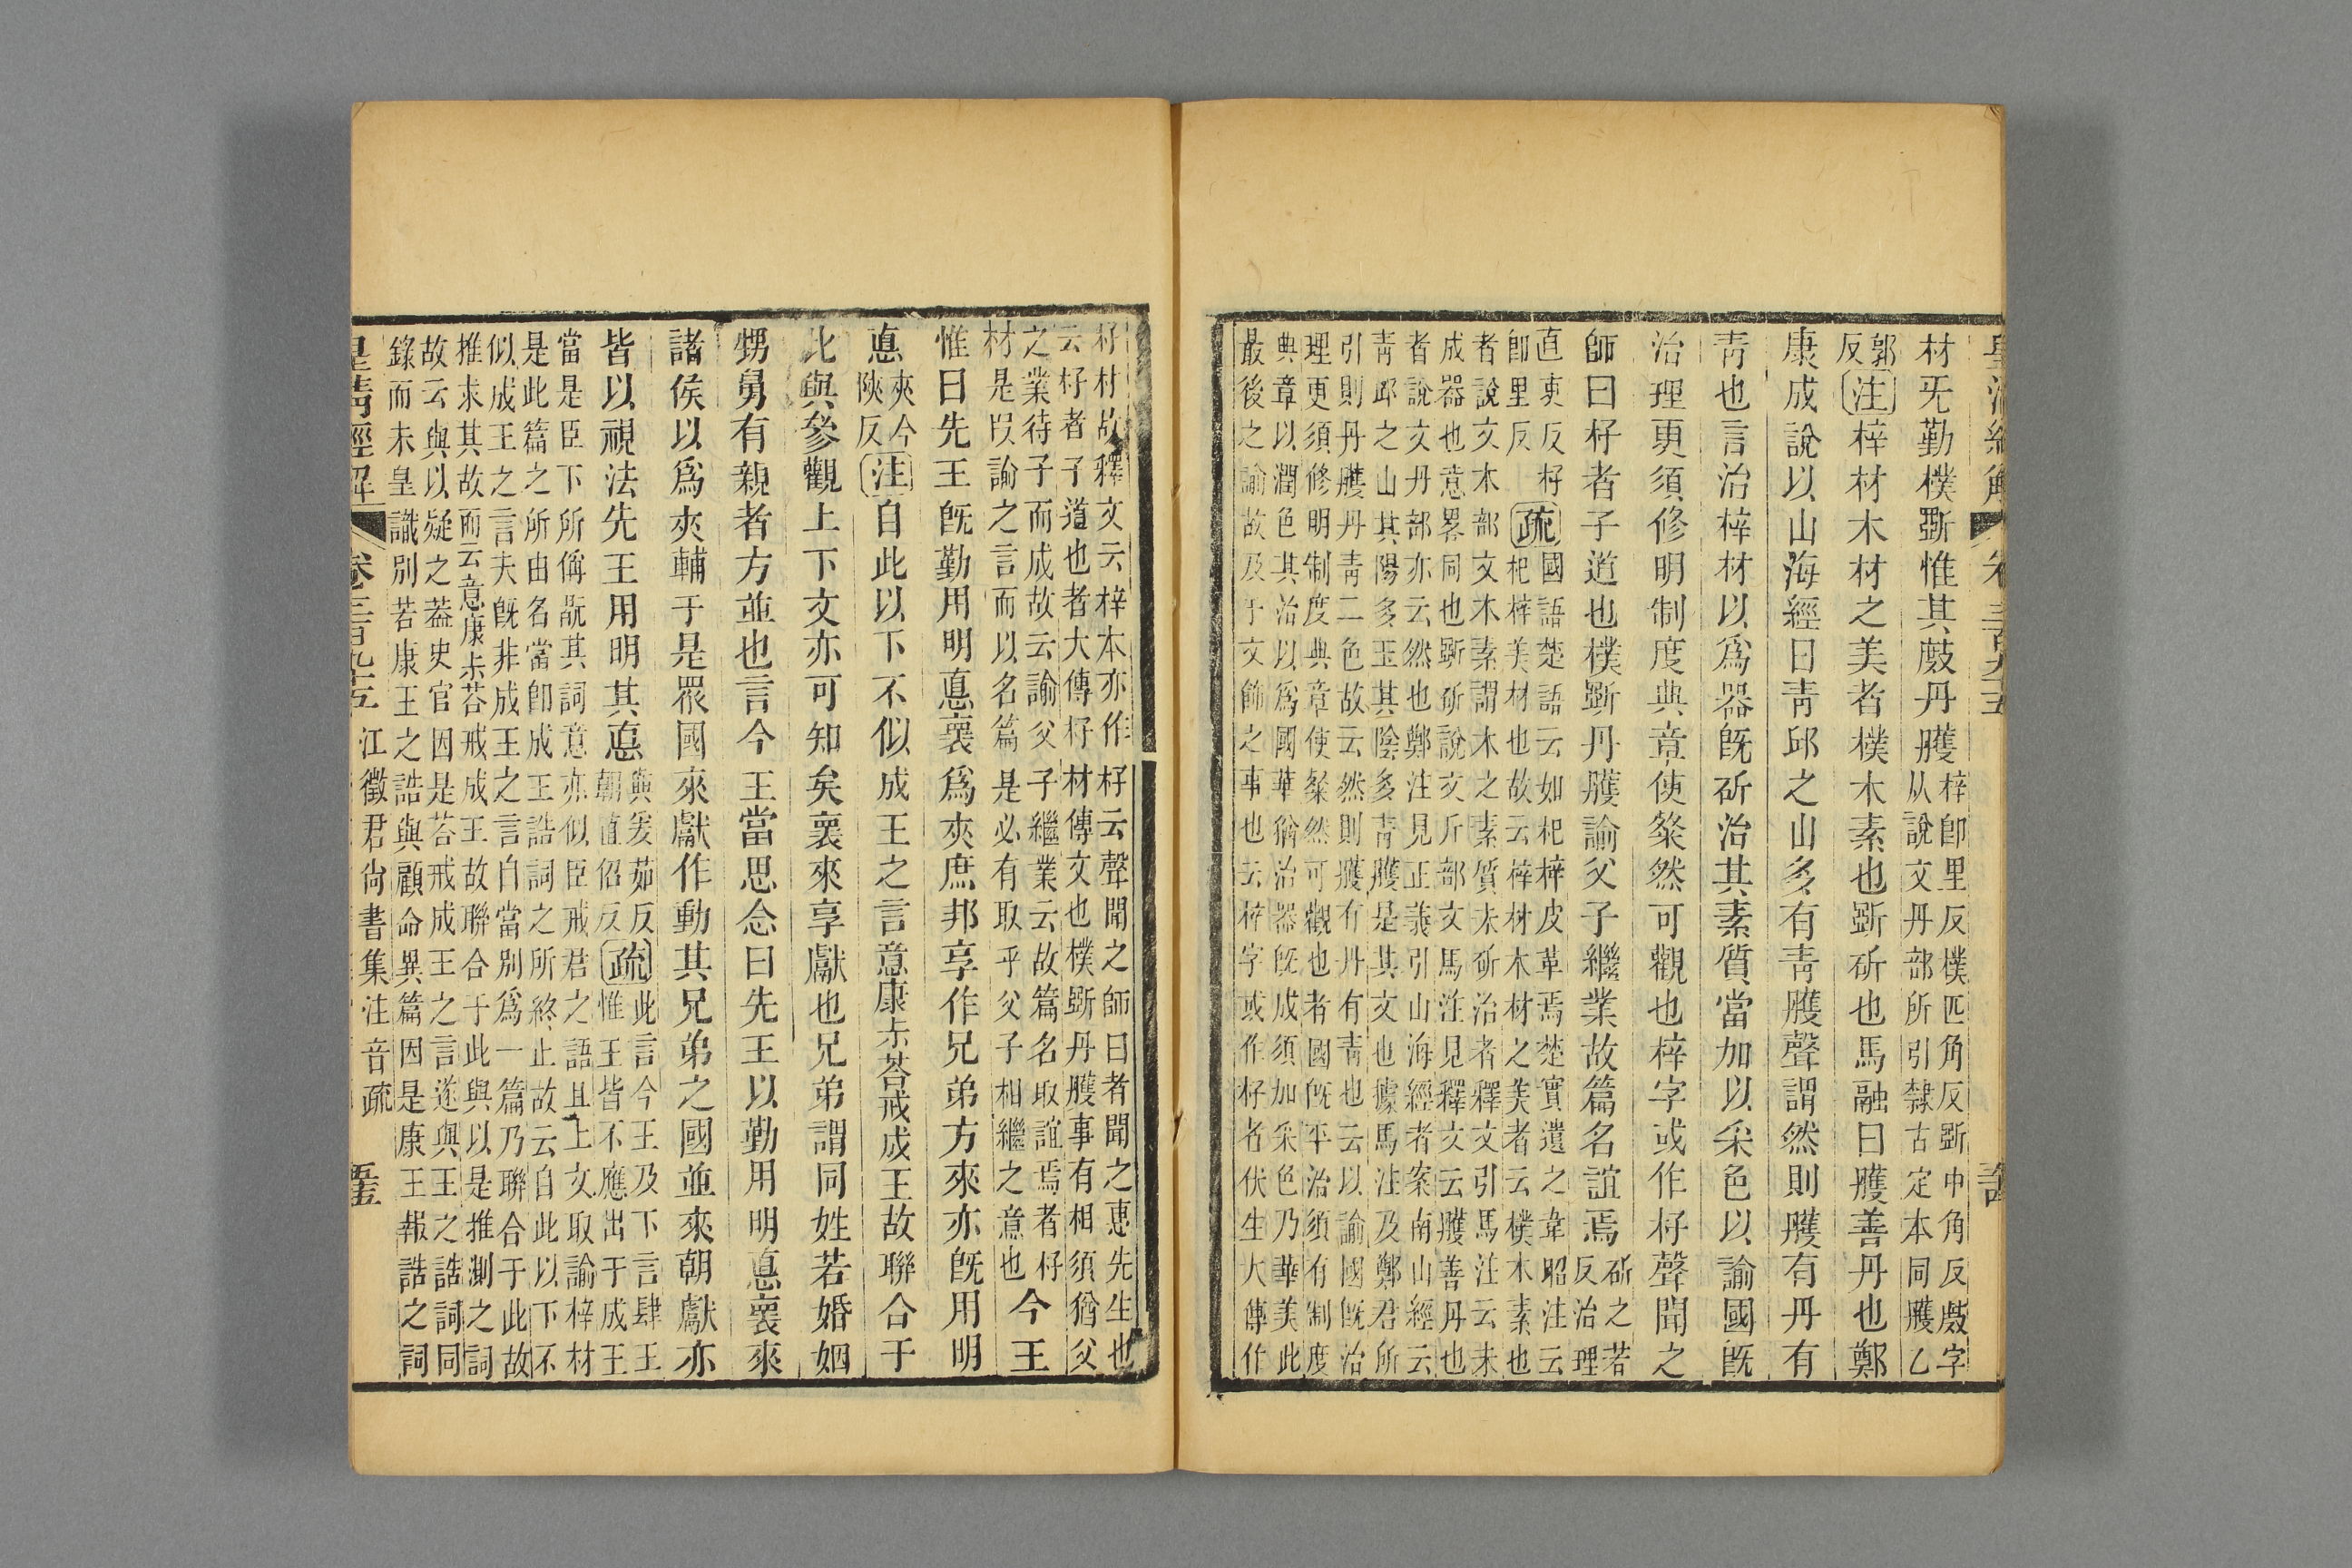 材旡勤樸斵惟其𢾖丹雘梓卽里反樸匹角反斵中角反𢾖字
从說文丹部所引隸古定本同雘乙
郭反注梓材木材之美者樸木素也斵斫也馬融曰雘善丹也鄭
康成說以山海經曰靑邱之山多有靑雘聲謂然則雘有丹有
靑也言治梓材以爲器旣斫治其素質當加以采色以諭國旣
治理更須修明制度典章使粲然可觀也梓字或作杍聲聞之
師曰杍者子道也樸斵丹雘諭父子繼業故篇名誼焉斫之若反治理
直吏反杍卽里反疏國語楚語云如杞梓皮革焉楚實遺之韋昭注云
杞梓美材也故云梓材木材之美者云樸木素也
者說文木部文木素謂木之素質未斫治者釋文引馬注云未
成器也意畧同也斵斫說文斤部文馬注見釋文云雘善丹也
者說文丹部亦云然也鄭注見正義引山海經者案南山經云
靑邱之山其陽多玉其陰多靑雘是其文也據馬注及鄭君所
引則丹雘丹靑二色故云然則雘有丹有靑也云以諭國旣治
理更須修明制度典章使粲然可觀也者國旣平治須有制度
典章以潤色其治以爲國華猶治器旣成須加采色乃華美此
最後之諭故及于文飾之事也云梓字或作杍者伏生大傳作
杍材故釋文云梓本亦作杍云聲聞之師曰者聞之惠先生也
云杍者子道也者大傳杍材傳文也樸斵丹雘事有相須猶父
之業待子而成故云諭父子繼業云故篇名取誼焉者杍
材是叚諭之言而以名篇是必有取乎父子相繼之意也今王
惟曰先王旣勤用明悳褱爲夾庶邦享作兄弟方來亦旣用明
悳夾今陝反注自此以下不似成王之言意康未荅戒成王故聯合于
此與參觀上下文亦可知矣褱來享獻也兄弟謂同姓若婚姻
甥舅有親者方並也言今王當思念曰先王以勤用明悳褱來
諸侯以爲夾輔于是眾國來獻作動其兄弟之國並來朝獻亦
皆以視法先王用明其悳與爰茹反朝直佋反疏此言今王及下言肆王
惟王皆不應出于成王
當是臣下所偁翫其詞意亦似臣戒君之語且上文取諭梓材
是此篇之所由名當卽成王誥詞之所終止故云自此以下不
似成王之言夫旣非成王之言自當別爲一篇乃聯合于此故
推求其故而云意康未荅戒成王故聯合于此與以是推測之詞
故云與以疑之葢史官因是荅戒成王之言遂與王之誥詞同
錄而未皇識別若康王之誥與顧命異篇因是康王報誥之詞
皇淸經解 卷三百九十五 江徵君尙書集注音疏 五